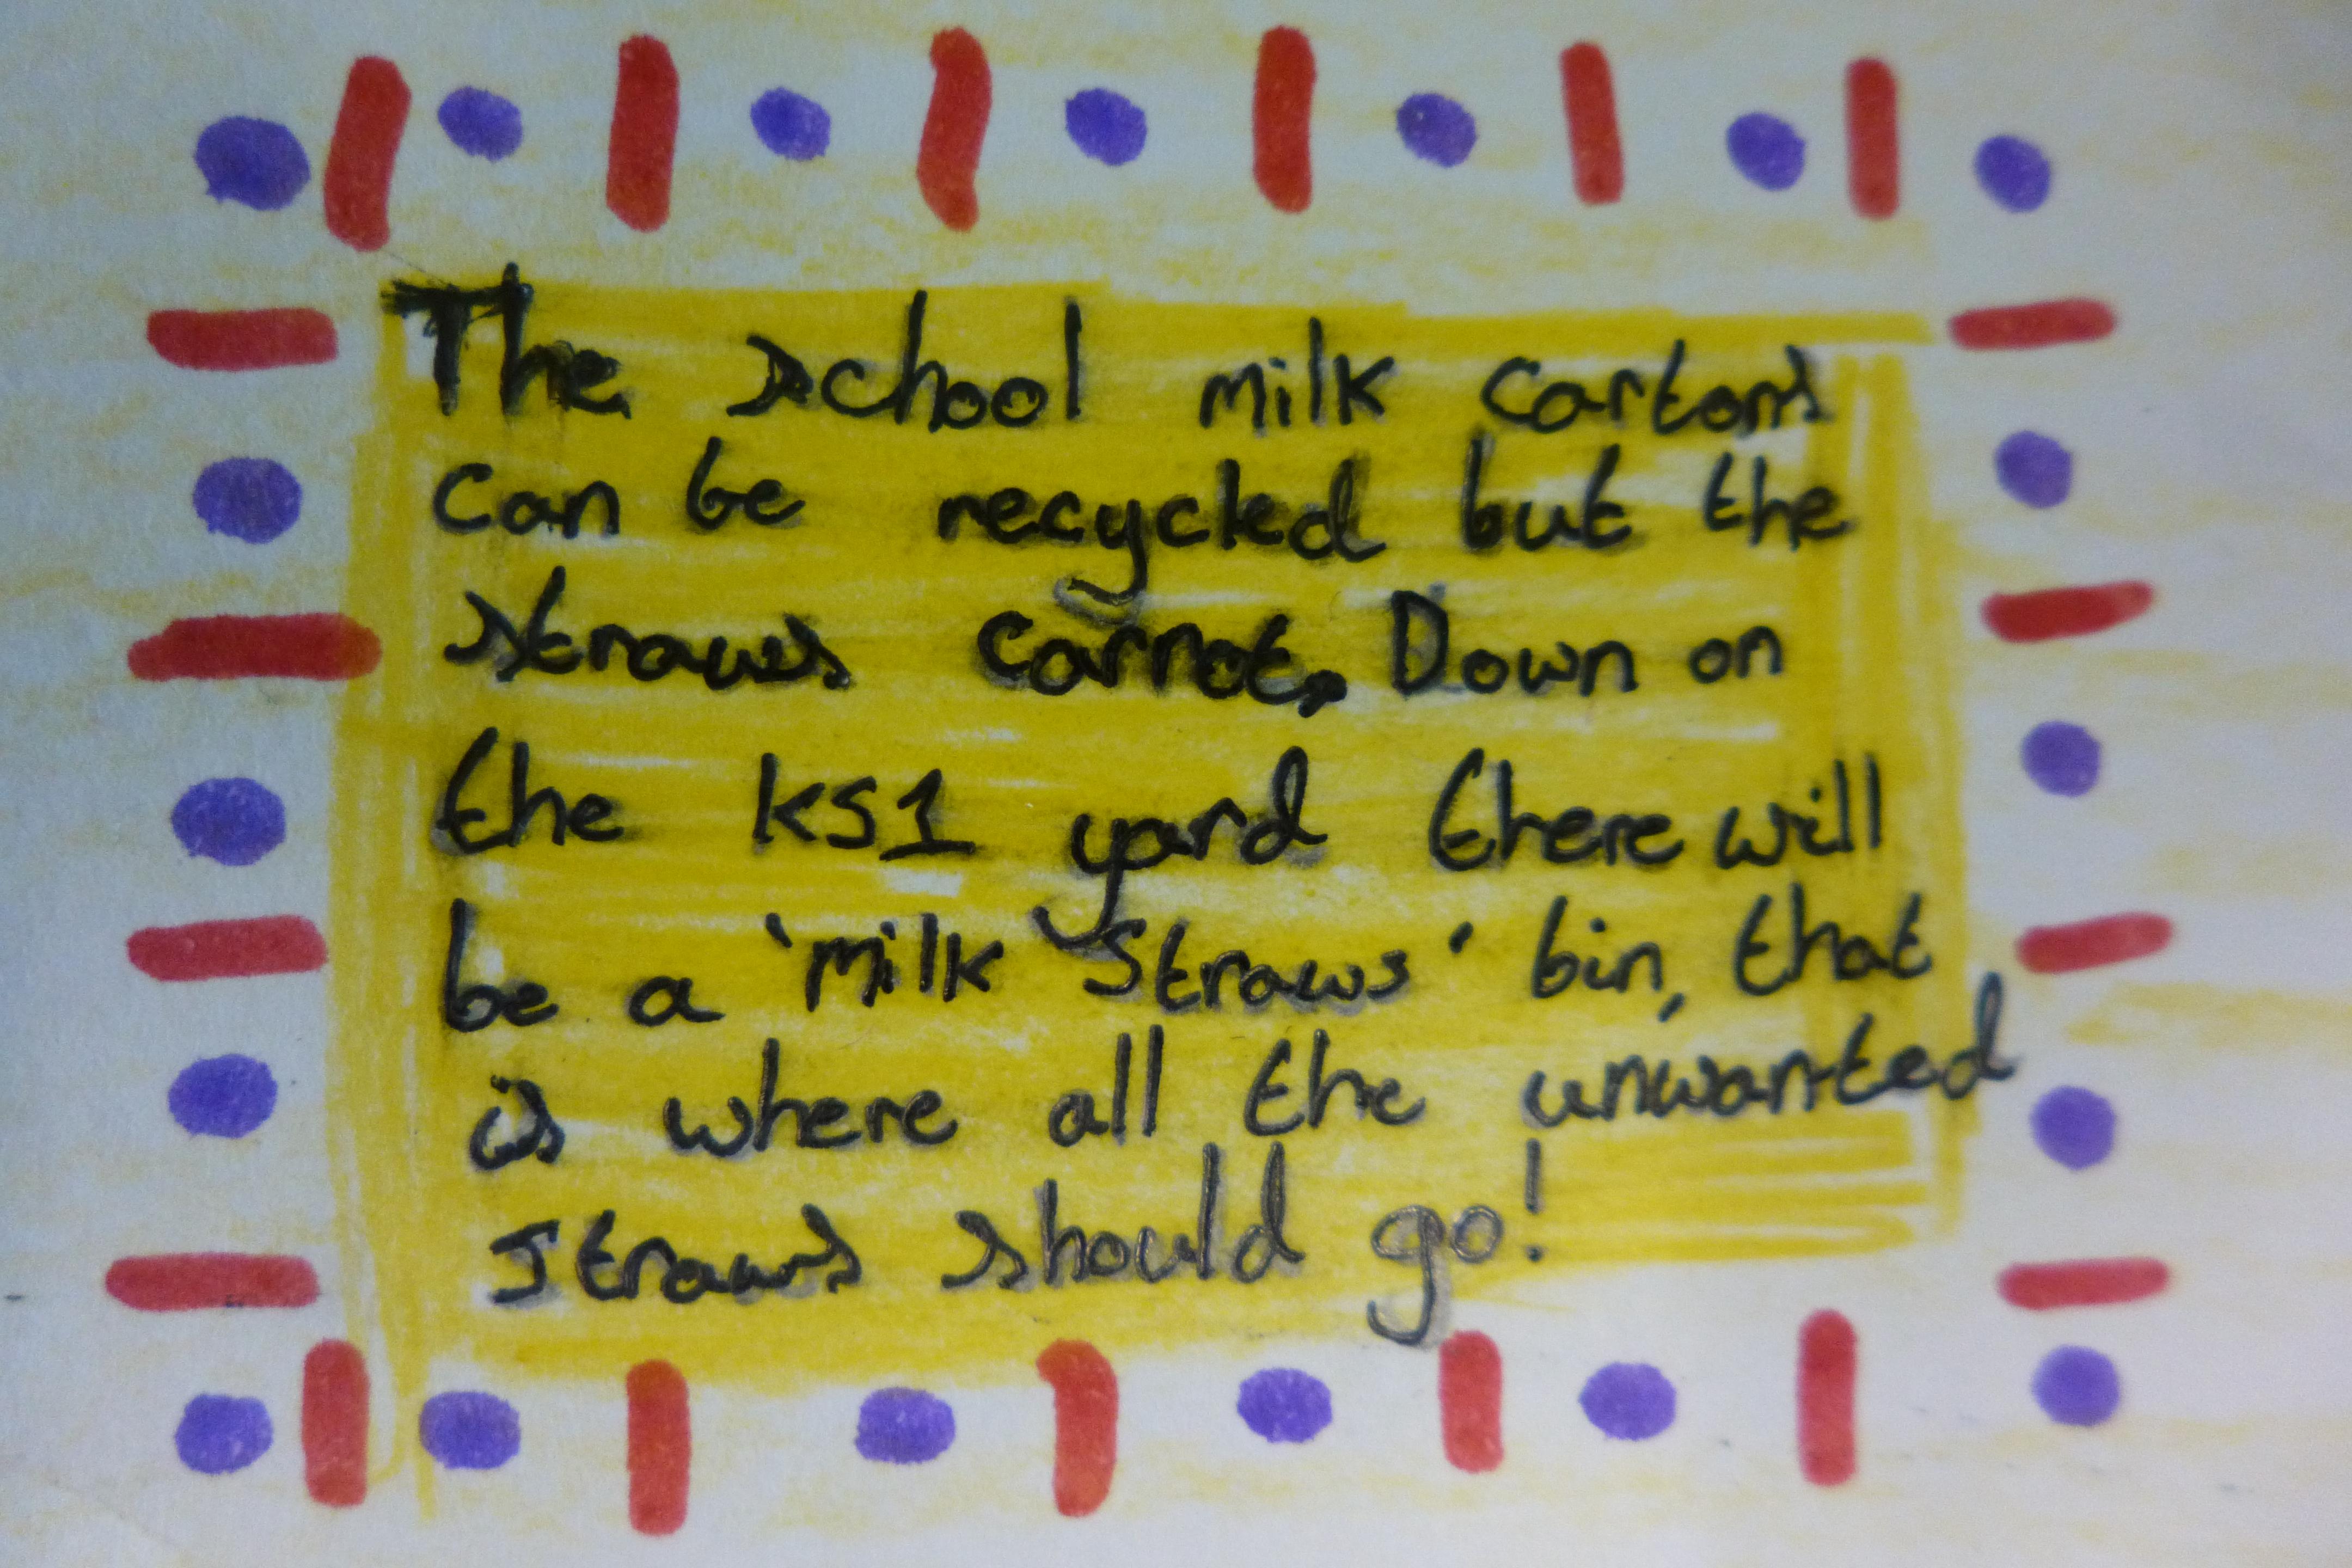 The school milk cartons
can be recycled but the
straws cannot. Down on
the KS1 yard there will
be a 'milk straws' bin, that
is where all the unwanted
straws should go!